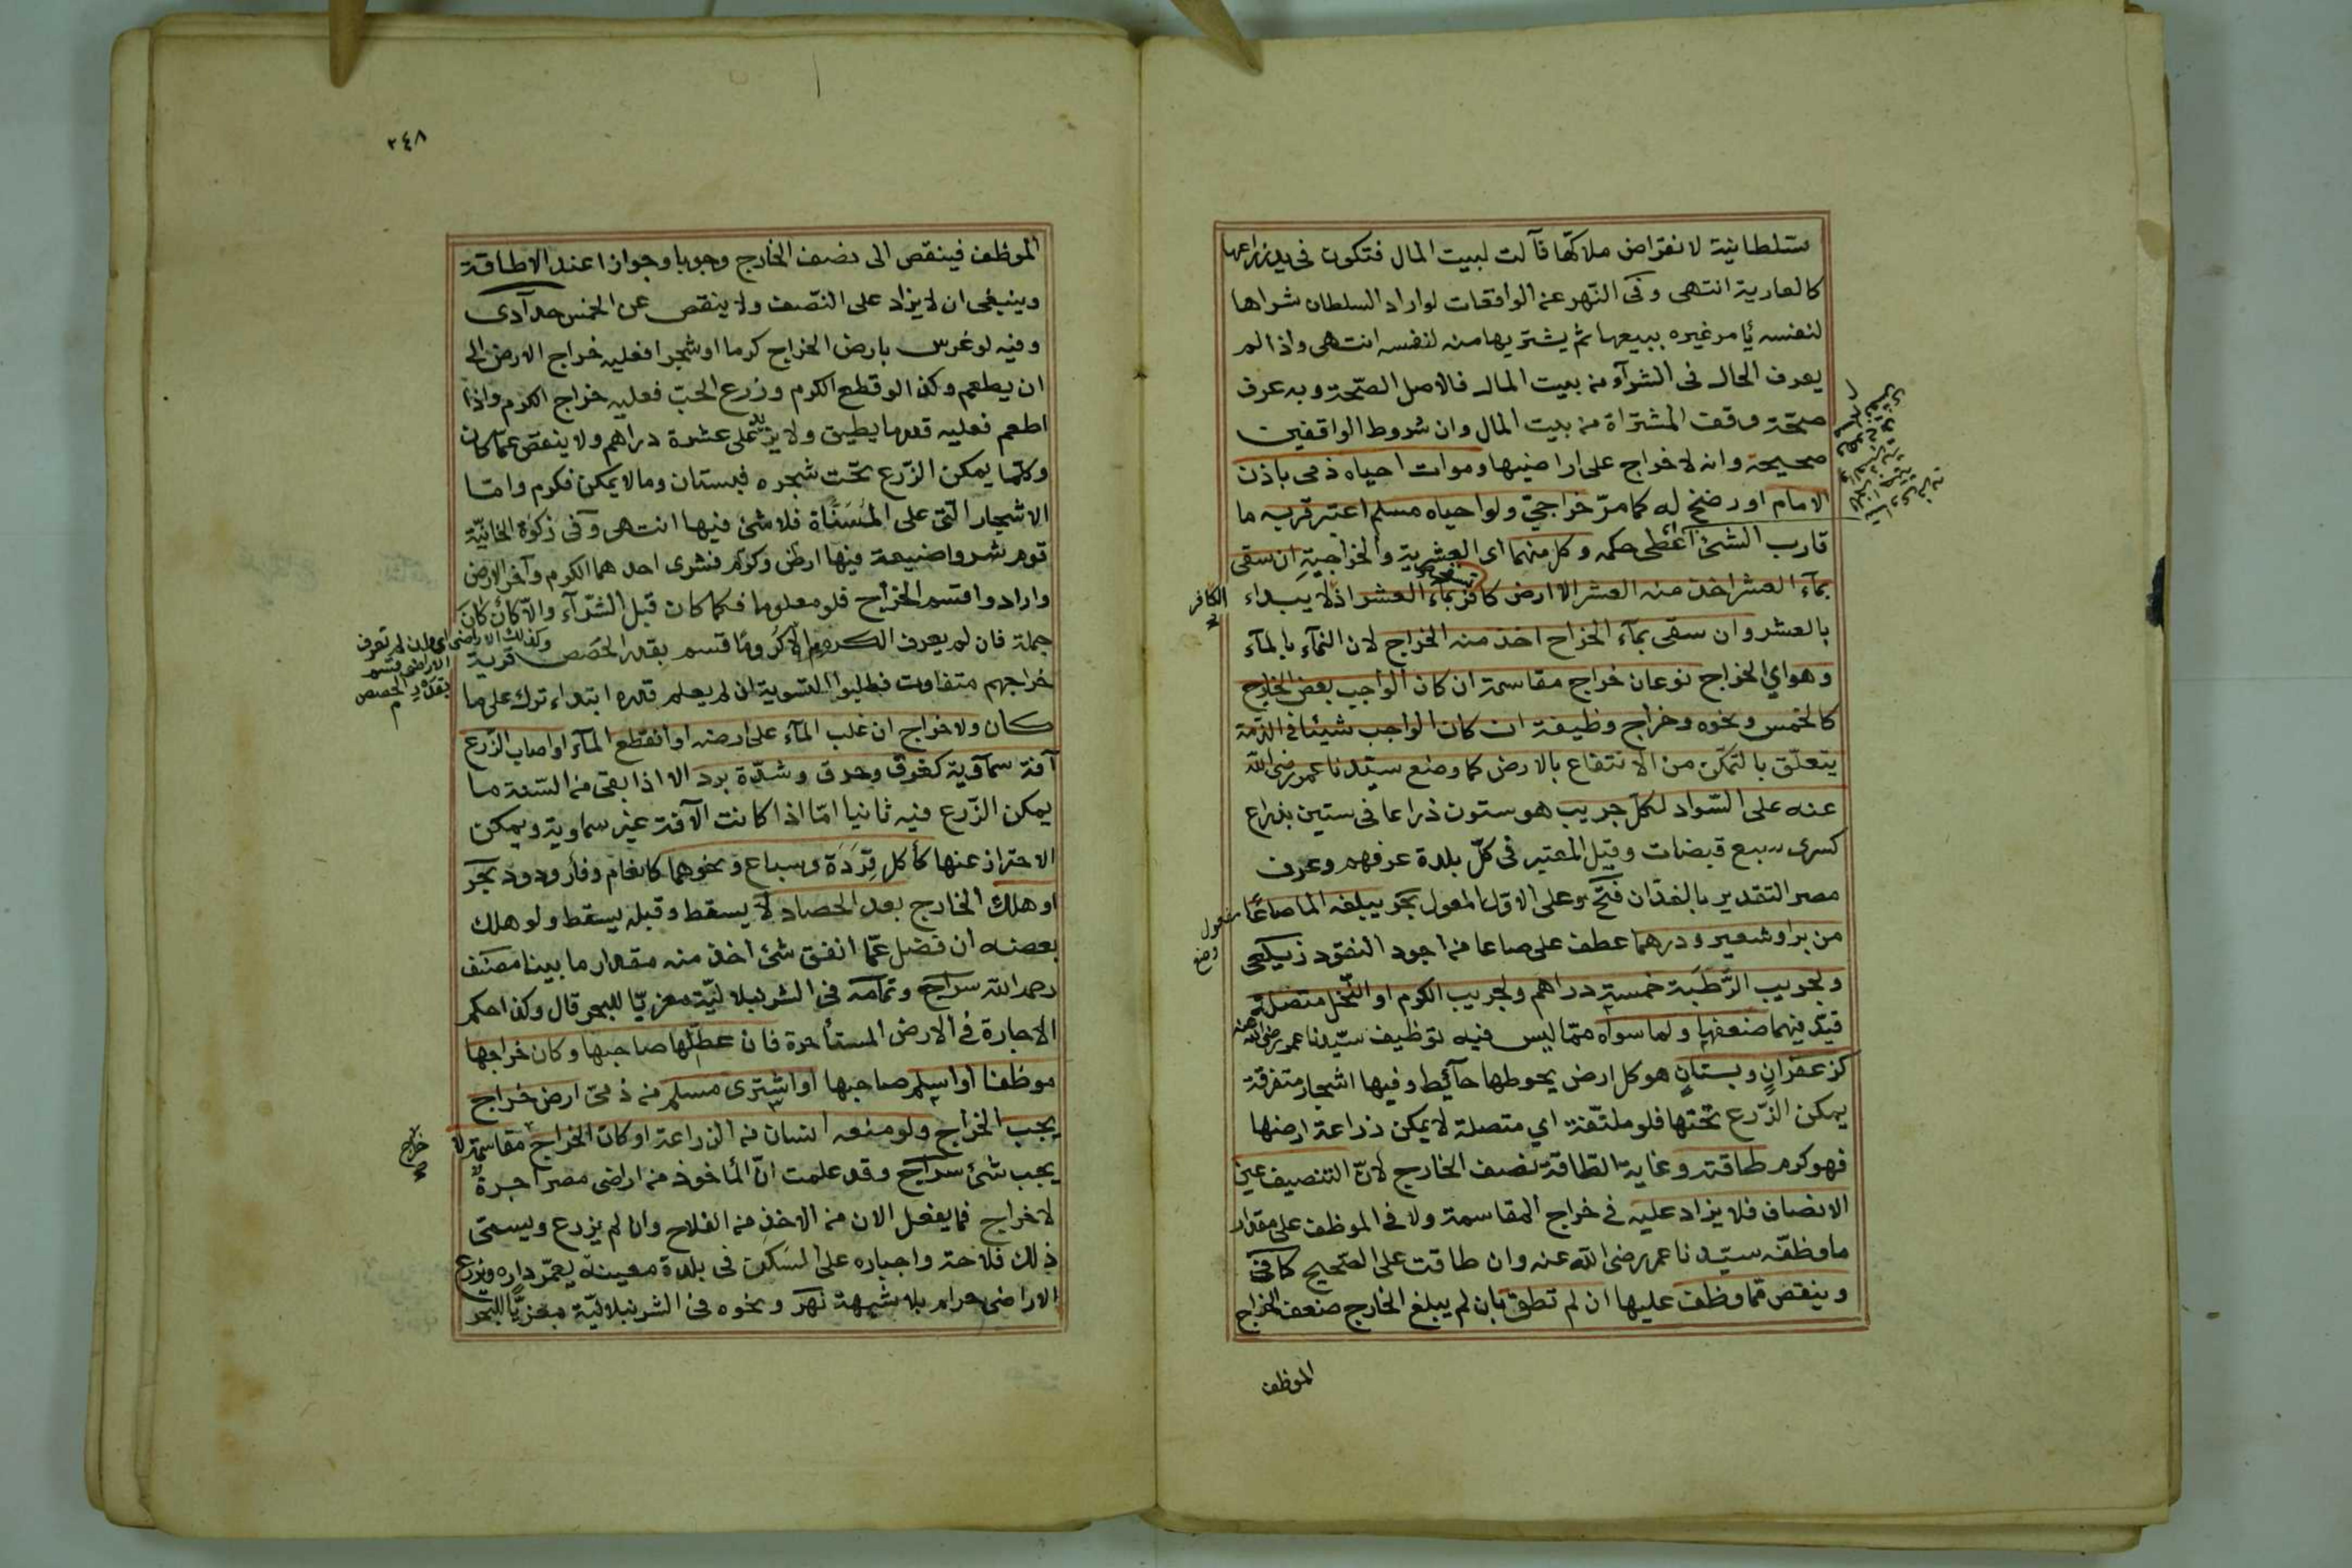 سلطانية لانقراض ملاكها فآلت لبيت المال فتكون فى يد زراعها
كالعارية انتهى وفى النهر عن الواقعات لو اراد السلطان شراها
لنفسه يأمر غيره ببيعها ثم يشتريها منه لنفسه انتهى واذا لم
يعرف الحال فى الشرآء من بيت المال فالاصل الصحة وبه عرف
صحة وقف المشتراة من بيت المال وان شروط الواقفين
صحيحة وانه لا خراج على اراضيها وموات احياه ذمى باذن
الامام او رضخ له كما مرّ خراجيّ ولو احياه مسلم اعتبر قربه ما
قارب الشئ اعطى حكمه وكل منهما اى العشرية والخراجية ان سقى
بمآء العشر اخذ منه العشر الا ارض كافر تسقى بمآء العشر اذ لا يبداء
الكافر
بالعشر وان سقى بمآء الخراج اخذ منه الخراج لان النمآء بالمآء
وهو اي الخراج نوعان خراج مقاسمة ان كان الواجب بعض الخارج
كالخمس ونحوه وخراج وظيفة ان كان الواجب شيئا فى الذمة
يتعلّق بالتمكّن من الانتفاع بالارض كما وضع سيّدنا عمر رضى الله
عنه على السّواد لكلّ جريب هو ستون ذراعا فى ستين بذراع
كسرى سبع قبضات وقيل المعتبر فى كلّ بلدة عرفهم وعرف
مصر التقدير بالفدّان فتح وعلى الاوّل المعول بحر يبلغه الما صاعًا
من بر او شعير ودرهما عطف على صاعا من اجود النقود زيلعى
ولجريب الرَّطبَة خمسة دراهم ولجريب الكرم او النّخل متصلة
قيّد فيهما ضعفها ولما سواه ممّا ليس فيه توظيف سيّدنا عمر رضى الله عنه
كزعفرانٍ وبستانٍ هو كل ارض يحوطها حآئط وفيها اشجار متفرقة
يمكن الزّرع تحتها فلو ملتفّة اي متصلة لا يمكن زراعة ارضها
فهو كرم طاقته وغاية الطّاقة نصف الخارج لانّ التنصيف عين
الانصاف فلا يزاد عليه فى خراج المقاسمة ولا فى الموظف على مقدار
ما وظّفه سيّدنا عمر رضى الله عنه وان طاقت على الصّحيح كافى
وينقص ممّا وظف عليها ان لم تطق بان لم يبلغ الخارج ضعف الخراج
الموظف
٢٤٨
الموظف فينقص الى نصف الخارج وجوبا وجوازا عند الاطاقة
وينبغى ان لا يزاد على النّصف ولا ينقص عن الخمس حدّادى
وفيه لو غرس بارض الخراج كرما او شجرا فعليه خراج الارض الى
ان يطعم وكذا لو قطع الكرم وزرع الحبّ فعليه خراج الكرم واذا
اطعم فعليه قدر ما يطيق ولا يزيد على عشرة دراهم ولا ينقص عمّا كان
وكلّما يمكن الزّرع تحت شجره فبستان وما لا يمكن فكرم وامّا
الاشجار الّتى على المُسَنَّاة فلا شئ فيها انتهى وفى زكوة الخانيّة
قوم شروا ضيعة فيها ارض وكرم فشرى احدهما الكرم وآخر الارض
وارادوا قسم الخراج فلو معلوما فكما كان قبل الشّرآء والّا كأن كان
جملة فان لم يعرف الكروم الا كرومًا قسم بقدر الحصص قرية
وكذلك الاراضى
الاراضى قسم
بقدر الحصص
خراجهم متفاوت فطلبوا التسوية ان لم يعلم قدره ابتداء ترك على ما
كان ولا خراج ان غلب المآء على ارضه او انقطع المآء او اصاب الزّرع
آفة سمآوية كغرق وحرق وشدّة برد الا اذا بقى من السّنة ما
يمكن الزّرع فيه ثانيا امّا اذا كانت الآفة غير سماوية ويمكن
الاحتراز عنها كأكل قِرَدَة وسباع ونحوهما كانعام وفأر ودود بحر
او هلك الخارج بعد الحصاد لا يسقط وقبله يسقط ولو هلك
بعضه ان فضل عمّا انفق شئ اخذ منه مقدار ما بينا مصنف
رحمه الله سراج وتمامه فى الشرنبلاليّة معزيّا للبحر قال وكذا حكم
الاجارة فى الارض المستأجرة فان عطّلها صاحبها وكان خراجها
موظفا او اسلم صاحبها او اشترى مسلم من ذمّىّ ارض خراج
يجب الخراج ولو منعه انسان من الزراعة او كان الخراج مقاسمة لا
خراج
يجب شئ سراج وقد علمت انّ المأخوذ من اراضى مصر اجرة
لا خراج فما يفعل الان من الاخذ من الفلاح وان لم يزرع ويسمّى
ذلك فلاحة واجباره على السَكَن فى بلدة معينة يعمّر داره ويزرع
الاراضى حرام بلا شبهة نهر ونحوه فى الشرنبلاليّة معزيًّا للبحر